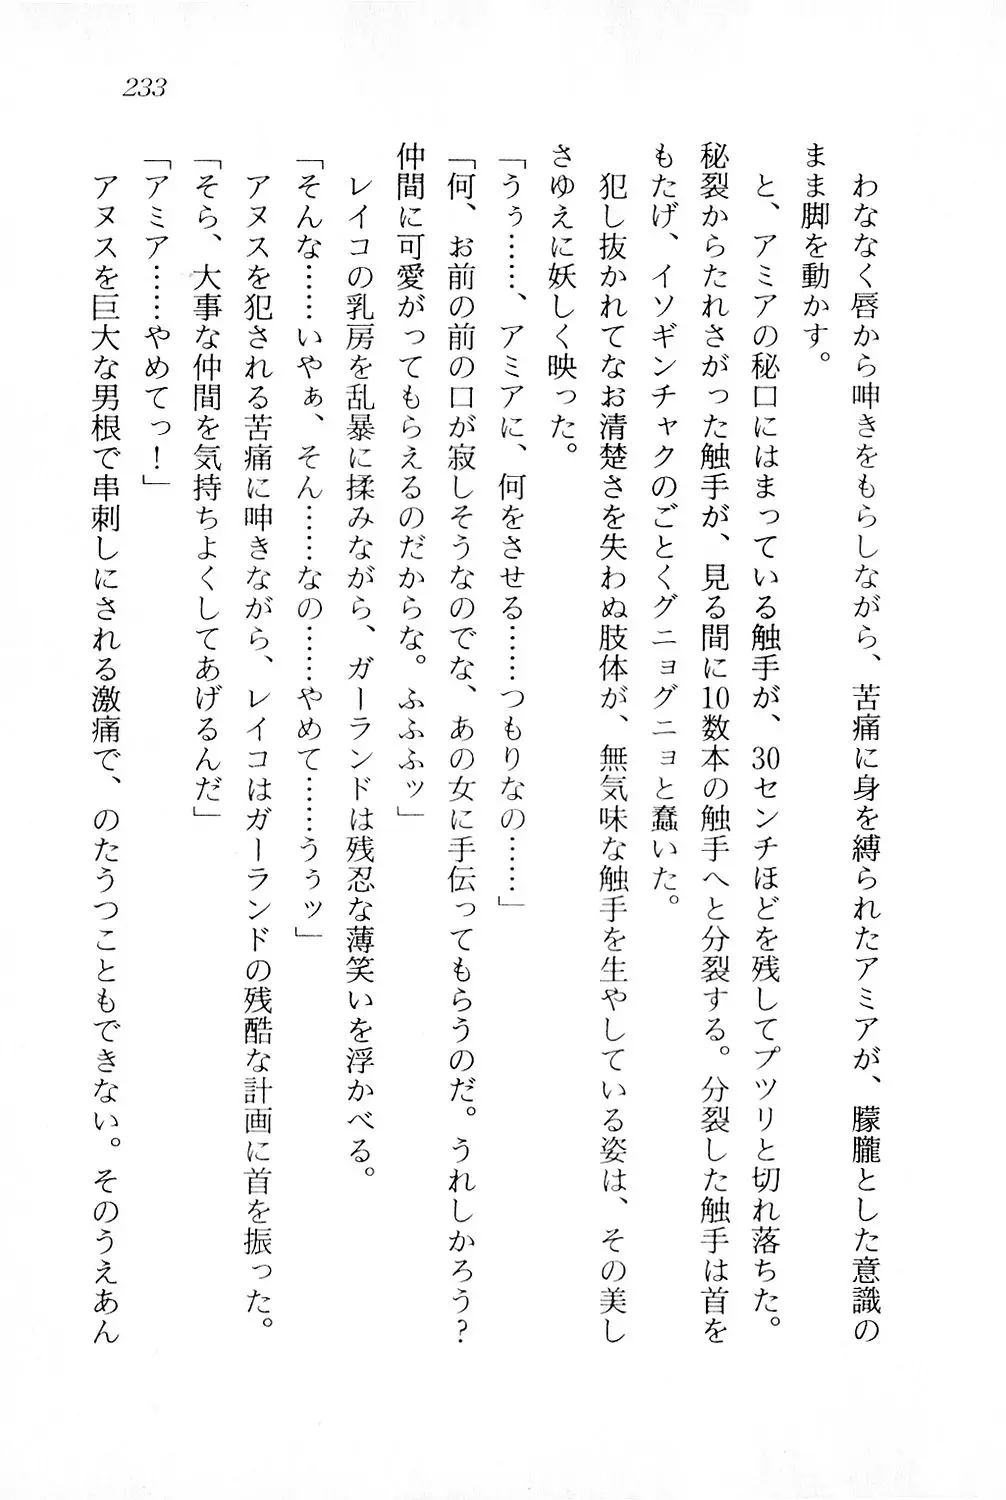 233
わななく唇から呻きをもらしながら、苦痛に身を縛られたアミアが、朦朧とした意識の
まま脚を動かす。
と、アミアの秘口にはまっている触手が、30センチほどを残してプツリと切れ落ちた。
秘裂からたれさがった触手が、見る間に10数本の触手へと分裂する。分裂した触手は首を
もたげ、イソギンチャクのごとくグニョグニョと蠢いた。
犯し抜かれてなお清楚さを失わぬ肢体が、無気味な触手を生やしている姿は、その美し
さゆえに妖しく映った。
「うぅ……、アミアに、何をさせる……つもりなの……」
「何、お前の前の口が寂しそうなのでな、あの女に手伝ってもらうのだ。うれしかろう?
仲間に可愛がってもらえるのだからな。ふふふッ」
レイコの乳房を乱暴に揉みながら、ガーランドは残忍な薄笑いを浮かべる。
「そんな……いやぁ、そん……なの……やめて……うぅッ」
アヌスを犯される苦痛に呻きながら、レイコはガーランドの残酷な計画に首を振った。
「そら、大事な仲間を気持ちよくしてあげるんだ」
「アミア……やめてっ!」
アヌスを巨大な男根で串刺しにされる激痛で、のたうつこともできない。そのうえあん